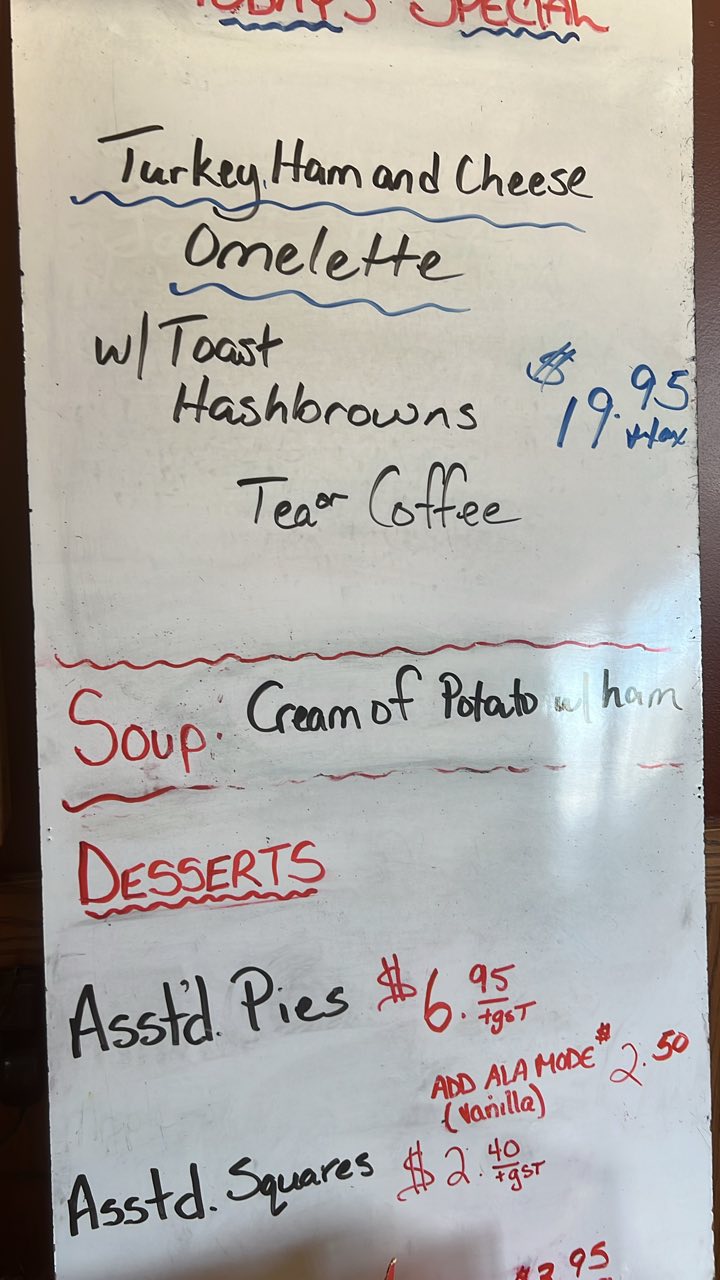 TODAY'S SPECIAL
Turkey, Ham and Cheese
Omelette
w/ Toast
Hashbrowns
$19.95
+tax
Tea or Coffee
Soup: Cream of Potato w/ ham
DESSERTS
Asst'd. Pies $6.95
+gST
ADD ALA MODE $2.50
(Vanilla)
Asstd. Squares $2.40
+gST
$3.95